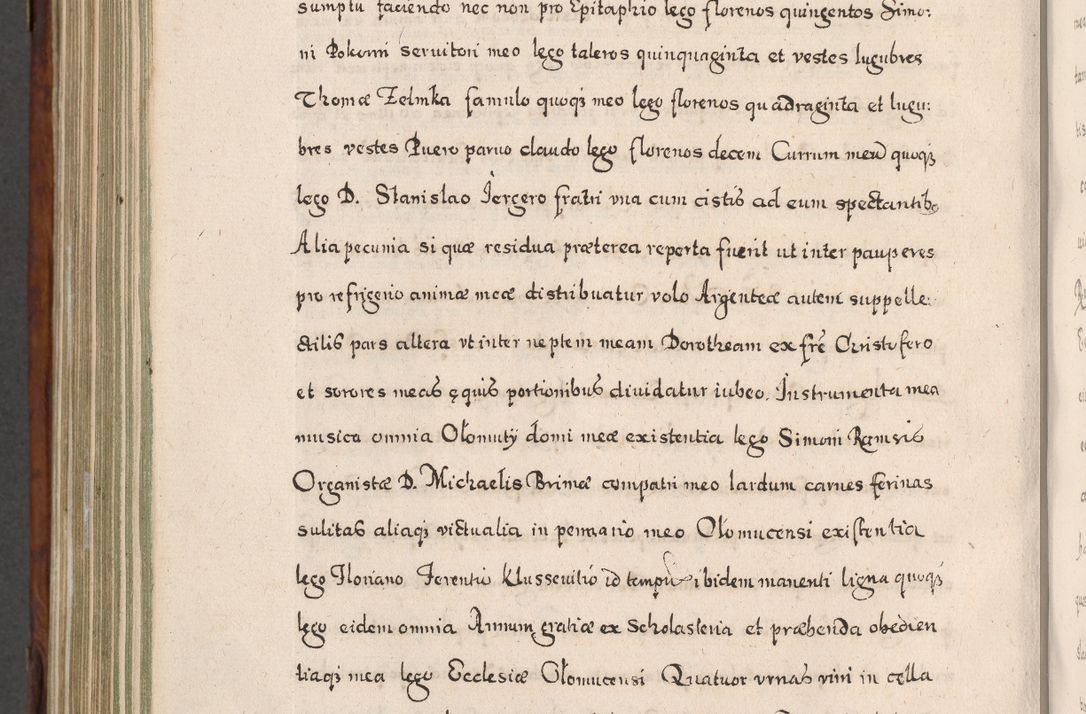 sumptu faciendo nec non pro Epitaphio lego florenos quingentos Simo:
ni Pokorni seruitori meo lego taleros quinquaginta et vestes lugubres
Thomæ Zelmka famulo quoqȝ meo lego florenos quadraginta et lugu:
bres vestes Puero paruo claudo lego florenos decem Currum meū quoqȝ
lego D. Stanislao Jergero fratri vna cum cistis ad eum spectantibꝯ
Alia pecunia si quæ residua præterea reperta fuerit ut inter pauperes
pro refrigerio animæ meæ distribuatur volo Argenteæ autem suppelle:
ctilis pars altera vt inter neptem meam Dorotheam ex frē Christofero
et sorores meas ęquis portionibus diuidatur iubeo. Instrumenta mea
musica omnia Olomutij domi meæ existentia lego Simoni
Organistæ D. Michaelis Brimæ compatri meo lardum carnes ferinas
sulitas aliaqȝ victualia in penuario meo Olomucensi existentia
lego Floriano Ferentio Klusseuitio id tempuris ibidem manenti ligna quoqȝ
lego eidem omnia Annum gratiæ ex Scholasteria et præbenda obedien
tiaqȝ mea lego Ecclesiæ Olomucensi Quatuor vrnas vini in cella